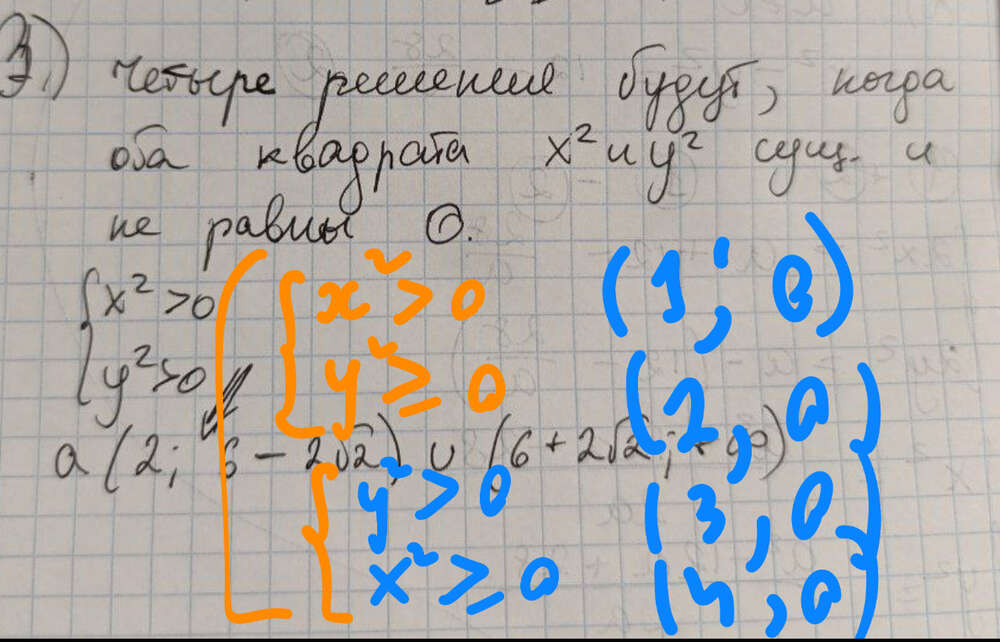 3.) Четыре решения будут, когда
оба квадрата x² и y² сущ. и
не равны 0.
{x² > 0
{y² > 0
a (2; 6 - 2√2) ∪ (6 + 2√2; +∞)
[{x² > 0
{y² ≥ 0
{y² > 0
{x² ≥ 0
(1; 0)
(2, 0)
(3, 0)
(4, 0)